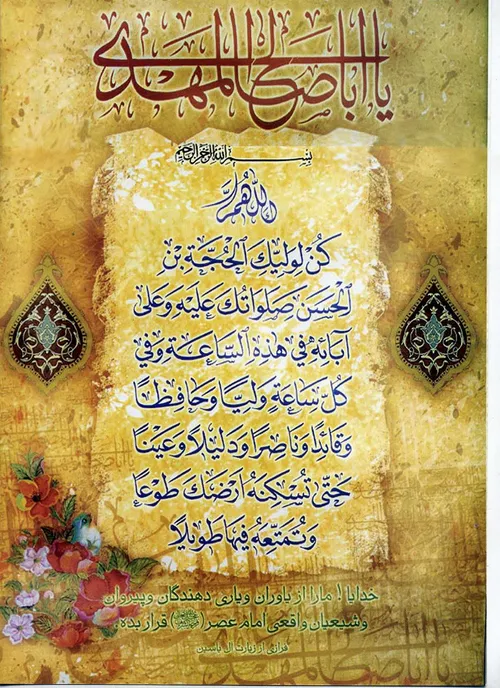 يا أبا صالح المهدي
بسم الله الرحمن الرحيم
اللهم
كُنْ لِوَلِيِّكَ الْحُجَّةِ بْنِ
الْحَسَنِ صَلَوَاتُكَ عَلَيْهِ وَعَلَى
آبَائِهِ فِي هَذِهِ السَّاعَةِ وَفِي
كُلِّ سَاعَةٍ وَلِيًّا وَحَافِظًا
وَقَائِدًا وَنَاصِرًا وَدَلِيلًا وَعَيْنًا
حَتَّى تُسْكِنَهُ أَرْضَكَ طَوْعًا
وَتُمَتِّعَهُ فِيهَا طَوِيلًا
خدایا ! ما را از یاوران و یاری دهندگان و پیروان
و شیعیان واقعی امام عصر () قرار بده.
فرازی از زیارت آل یاسین